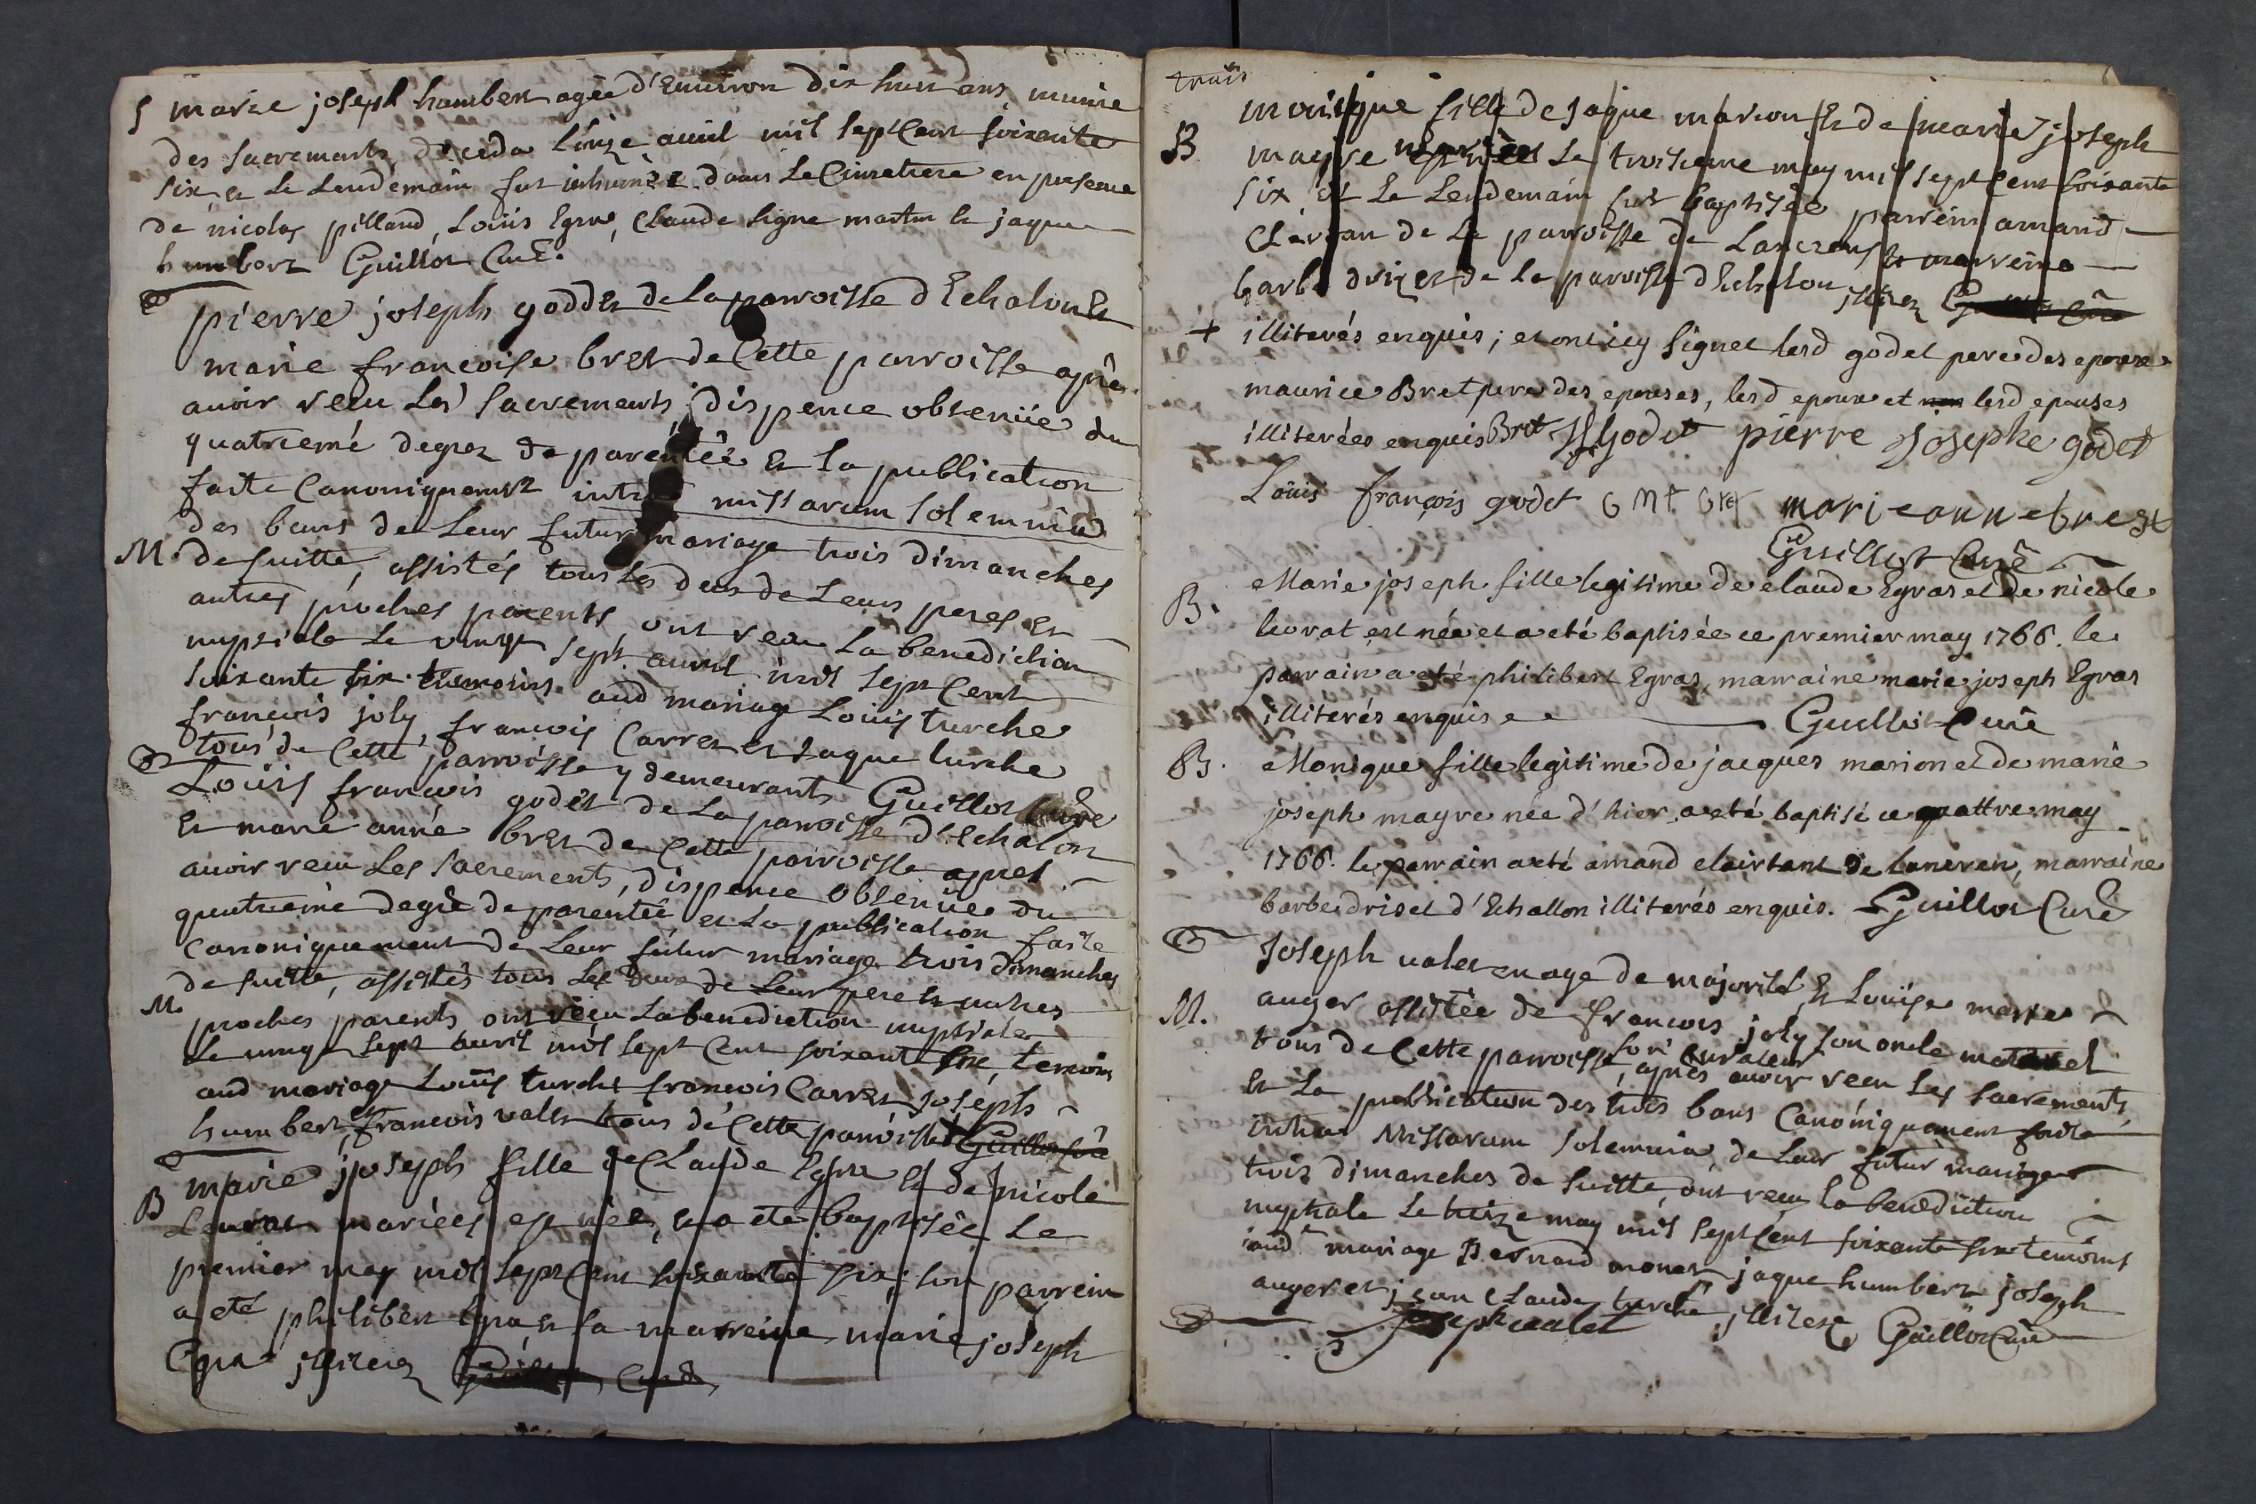 S marie joseph humbert agée d'Environ dix huit ans munie
des sacrements deceda l'onze avril mil sept cent soixante
six et le lendemain fut inhumée dans le Cimetiere en presence
de nicolas pilland, Loüis Egraz, Claude ligne martin et jaque
humbert Guillot Curé.
pierre joseph goddet de la parroisse d'Echalon Et
marie francoise bret de Cette parroisse après
avoir receu Les sacrements, dispence obtenüe du
quatriemé degrez de parentée Et la publication
faite Canoniquement intra missarum solemnia
des bans de Leur futur mariage trois dimanches
M. de suitte, assistés tous les deux de Leurs peres Et
autres proches parents ont receu La benediction
nuptiale Le vingt sept avril mil sept Cent
soixante six. temoins aud mariage Loüis turche
francois joly, francois Carrez et jaque turche
tous de Cette parroisse y demeurants Guillot Curé
Louis francois godet de La parroisse d'Echalon
Et marie anne bret de Cette parroisse apres
avoir receu Les sacrements, dispence obtenüe du
quatrieme degré de parentée et La publication faite
Canoniquement de Leur futur mariage trois dimanches
de suitte, assistés tous Les deux de Leur pere et autres
M. proches parents ont receu La benediction nuptiale
Le vingt sept avril mil sept Cent soixante six, temoins
aud mariage Loüis turche francois Carrez joseph
humbert, francois valet tous de Cette parroisse Guillot Curé
B marie joseph fille de Claude Egraz Et de nicole
Leuvrat mariées, est née, et a eté baptisée Le
premier may mil sept Cent soixante six; son parrein
a eté philibert Egraz Et la marreine marie joseph
Egraz illiterez Guillot Curé
trois
B monique fille de jaque marion Et de marie joseph
maeyre mariées est née Le troisieme may mil sept Cent soixante
six Et Le Lendemain fut baptisée parrein amand
Clertan de La parroisse de Lancrens Et marreine
barbe drizet de La parroisse d'Echalon illiterez Guillot Curé
+ illiterés enquis; et ont icy signet lesd godet pere des epoux
maurice Bret pere des epouses, lesd epoux et non lesd epouses
illiterées enquis Bret godet pierre Josephe godet
Loüis françois godet G M bret marieanne bret
Guillot Curé
B. Marie joseph fille legitime de claude Egraz et de nicole
levrat est née et a eté baptisée ce premier may 1766. le
parrain a eté philibert Egraz, marraine marie joseph Egraz
illiterés enquis Guillot Curé
B. Monique fille legitime de jacques marion et de marie
joseph mayre née d'hier a eté baptisé ce quattre may
1766. le parrain a eté amand clairtant de lancren, marraine
barbe driset d'Echallon illiterés enquis. Guillot Curé
Joseph valet en age de majorité, Et Loüise marie
M. auger assistée de francois joly son oncle maternel
son Curateur
tous de Cette parroisse, après avoir receu Les sacrements,
Et La publication des trois bans Canoniquement faite
intra Missarum solemnia, de Leur futur mariage
trois dimanches de suitte, ont receu la benediction
nuptiale Le treize may mil sept Cent soixante six temoins
aud mariage Bernard monet, jaque humbert joseph
auger et jean Claude turche, illiterez Guillot Curé
Joseph valet